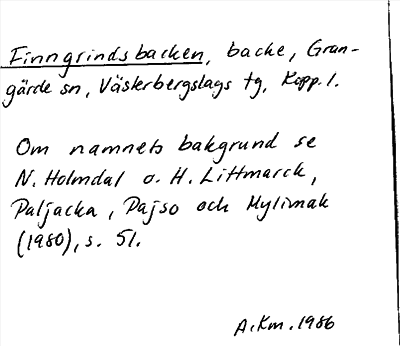 Finngrindsbacken, backe, Gran-
gärde sn, Västerbergslags tg, Kopp. l.
Om namnets bakgrund se
N. Holmdal o. H. Littmarck,
Paljacka, Pajso och Mylimak
(1980), s. 51.
A. Km. 1986